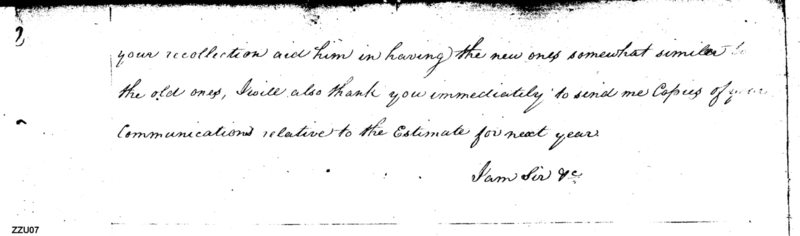 your recollection aid him in having the new ones somewhat similar to
the old ones, I will also thank you immediately to send me Copies of your
Communications relative to the Estimate for next year
I am Sir &c
ZZU07